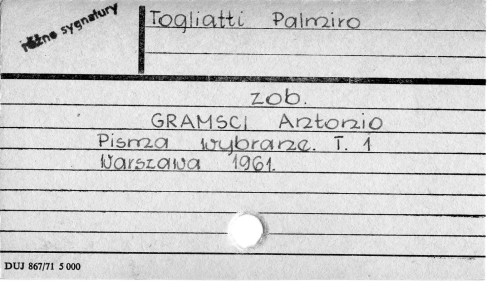 różne sygnatury
Togliatti Palmiro
zob.
GRAMSCI Antonio
Pisma wybrane. T. 1
Warszawa 1961.
DUJ 867/71 5 000